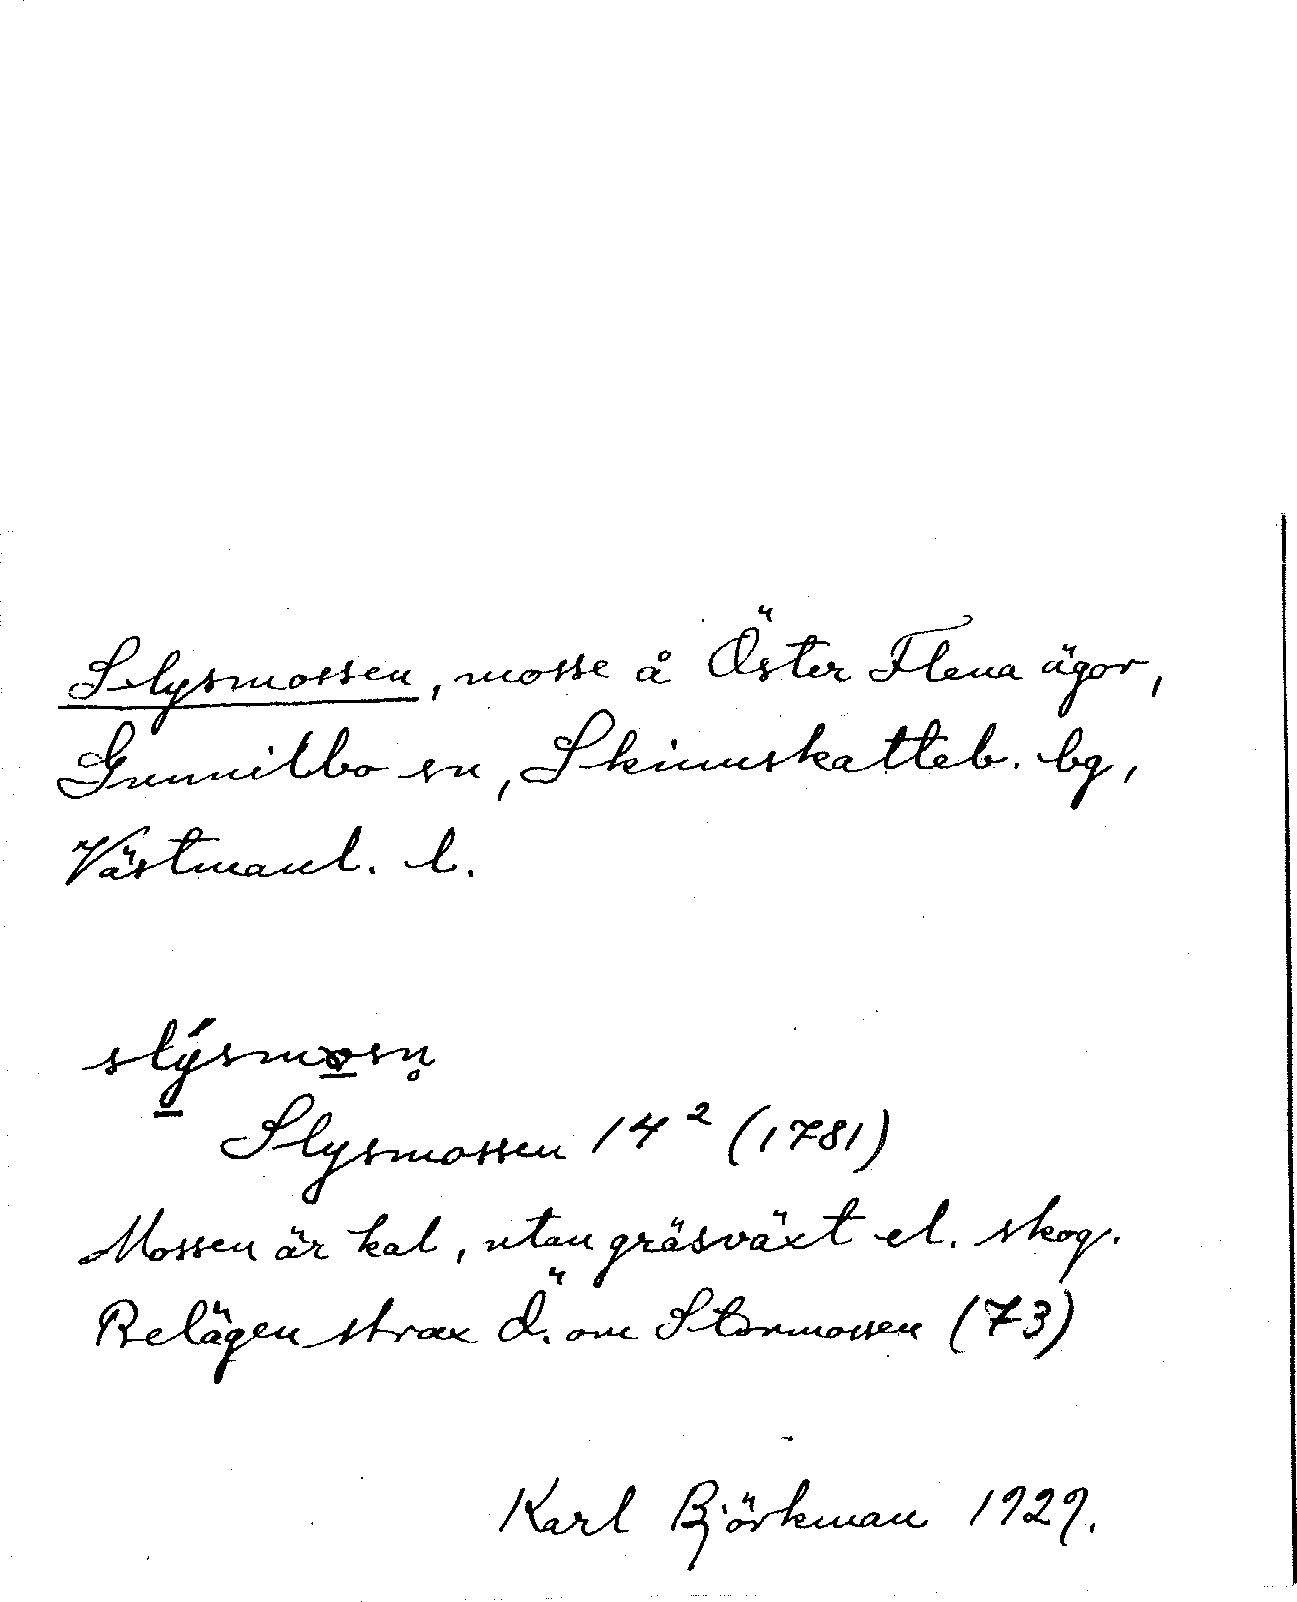 Slysmossen, mosse å Öster Flena ägor,
Gunnilbo sn, Skinnskatteb. bg,
Västmanl. l.
slýsmosn̥
Slysmossen 14² (1781)
Mossen är kal, utan gräsväxt el. skog.
Belägen strax Ö. om Stormossen (73)
Karl Björkman 1929.